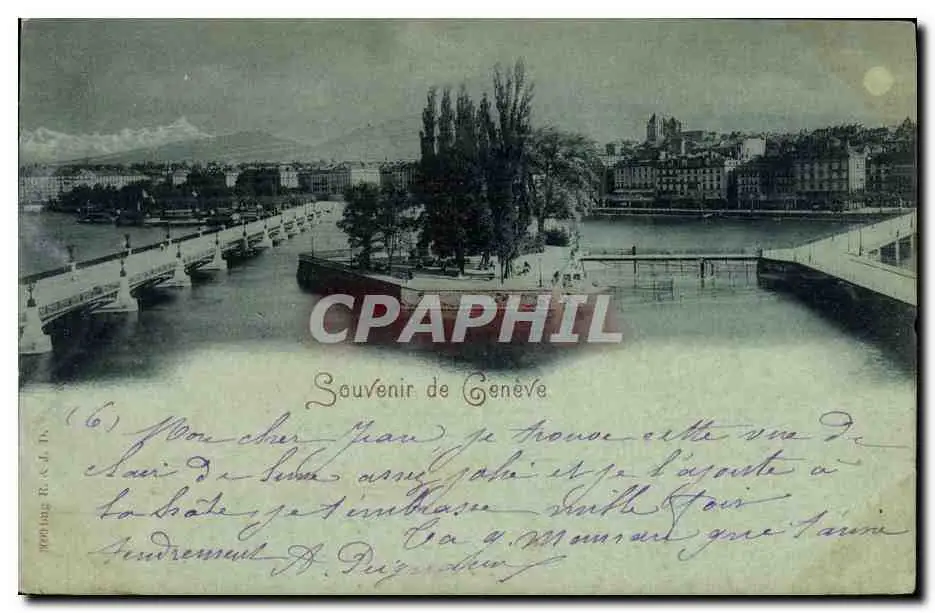 CPAPHIL
Souvenir de Genève
(6) Mon cher Jean je trouve cette vue de
clair de lune assez jolie et je l'ajoute à
la hâte je t'embrasse mille fois
tendrement A.
Ta g. Maman que t'aime
R. & J. D.